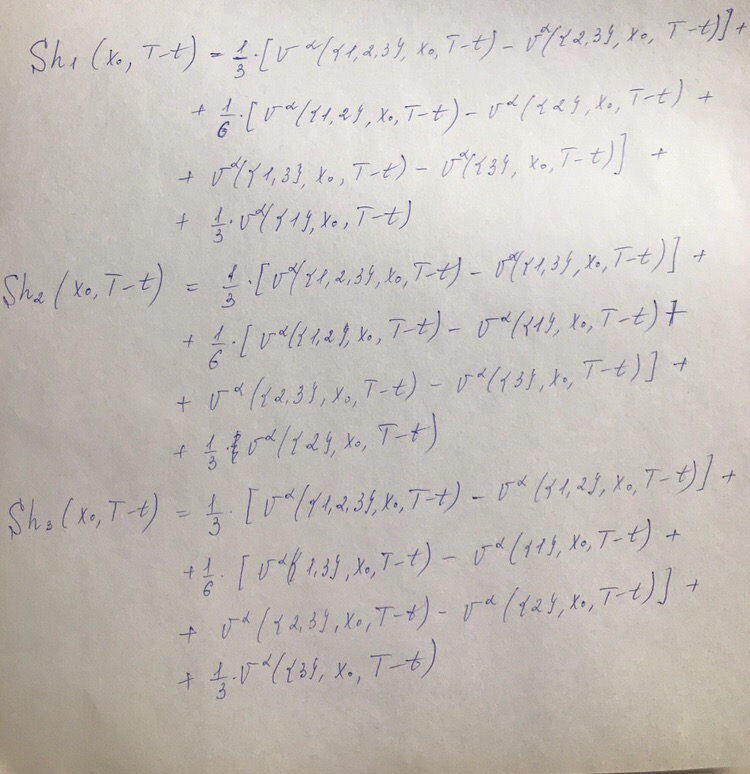 Sh₁(x₀, T-t) = 1/3 · [v^α({1,2,3}, x₀, T-t) - v^α({2,3}, x₀, T-t)] +
+ 1/6 · [v^α({1,2}, x₀, T-t) - v^α({2}, x₀, T-t) +
+ v^α({1,3}, x₀, T-t) - v^α({3}, x₀, T-t)] +
+ 1/3 · v^α({1}, x₀, T-t)
Sh₂(x₀, T-t) = 1/3 · [v^α({1,2,3}, x₀, T-t) - v^α({1,3}, x₀, T-t)] +
+ 1/6 · [v^α({1,2}, x₀, T-t) - v^α({1}, x₀, T-t) +
+ v^α({2,3}, x₀, T-t) - v^α({3}, x₀, T-t)] +
+ 1/3 · v^α({2}, x₀, T-t)
Sh₃(x₀, T-t) = 1/3 · [v^α({1,2,3}, x₀, T-t) - v^α({1,2}, x₀, T-t)] +
+ 1/6 · [v^α({1,3}, x₀, T-t) - v^α({1}, x₀, T-t) +
+ v^α({2,3}, x₀, T-t) - v^α({2}, x₀, T-t)] +
+ 1/3 · v^α({3}, x₀, T-t)